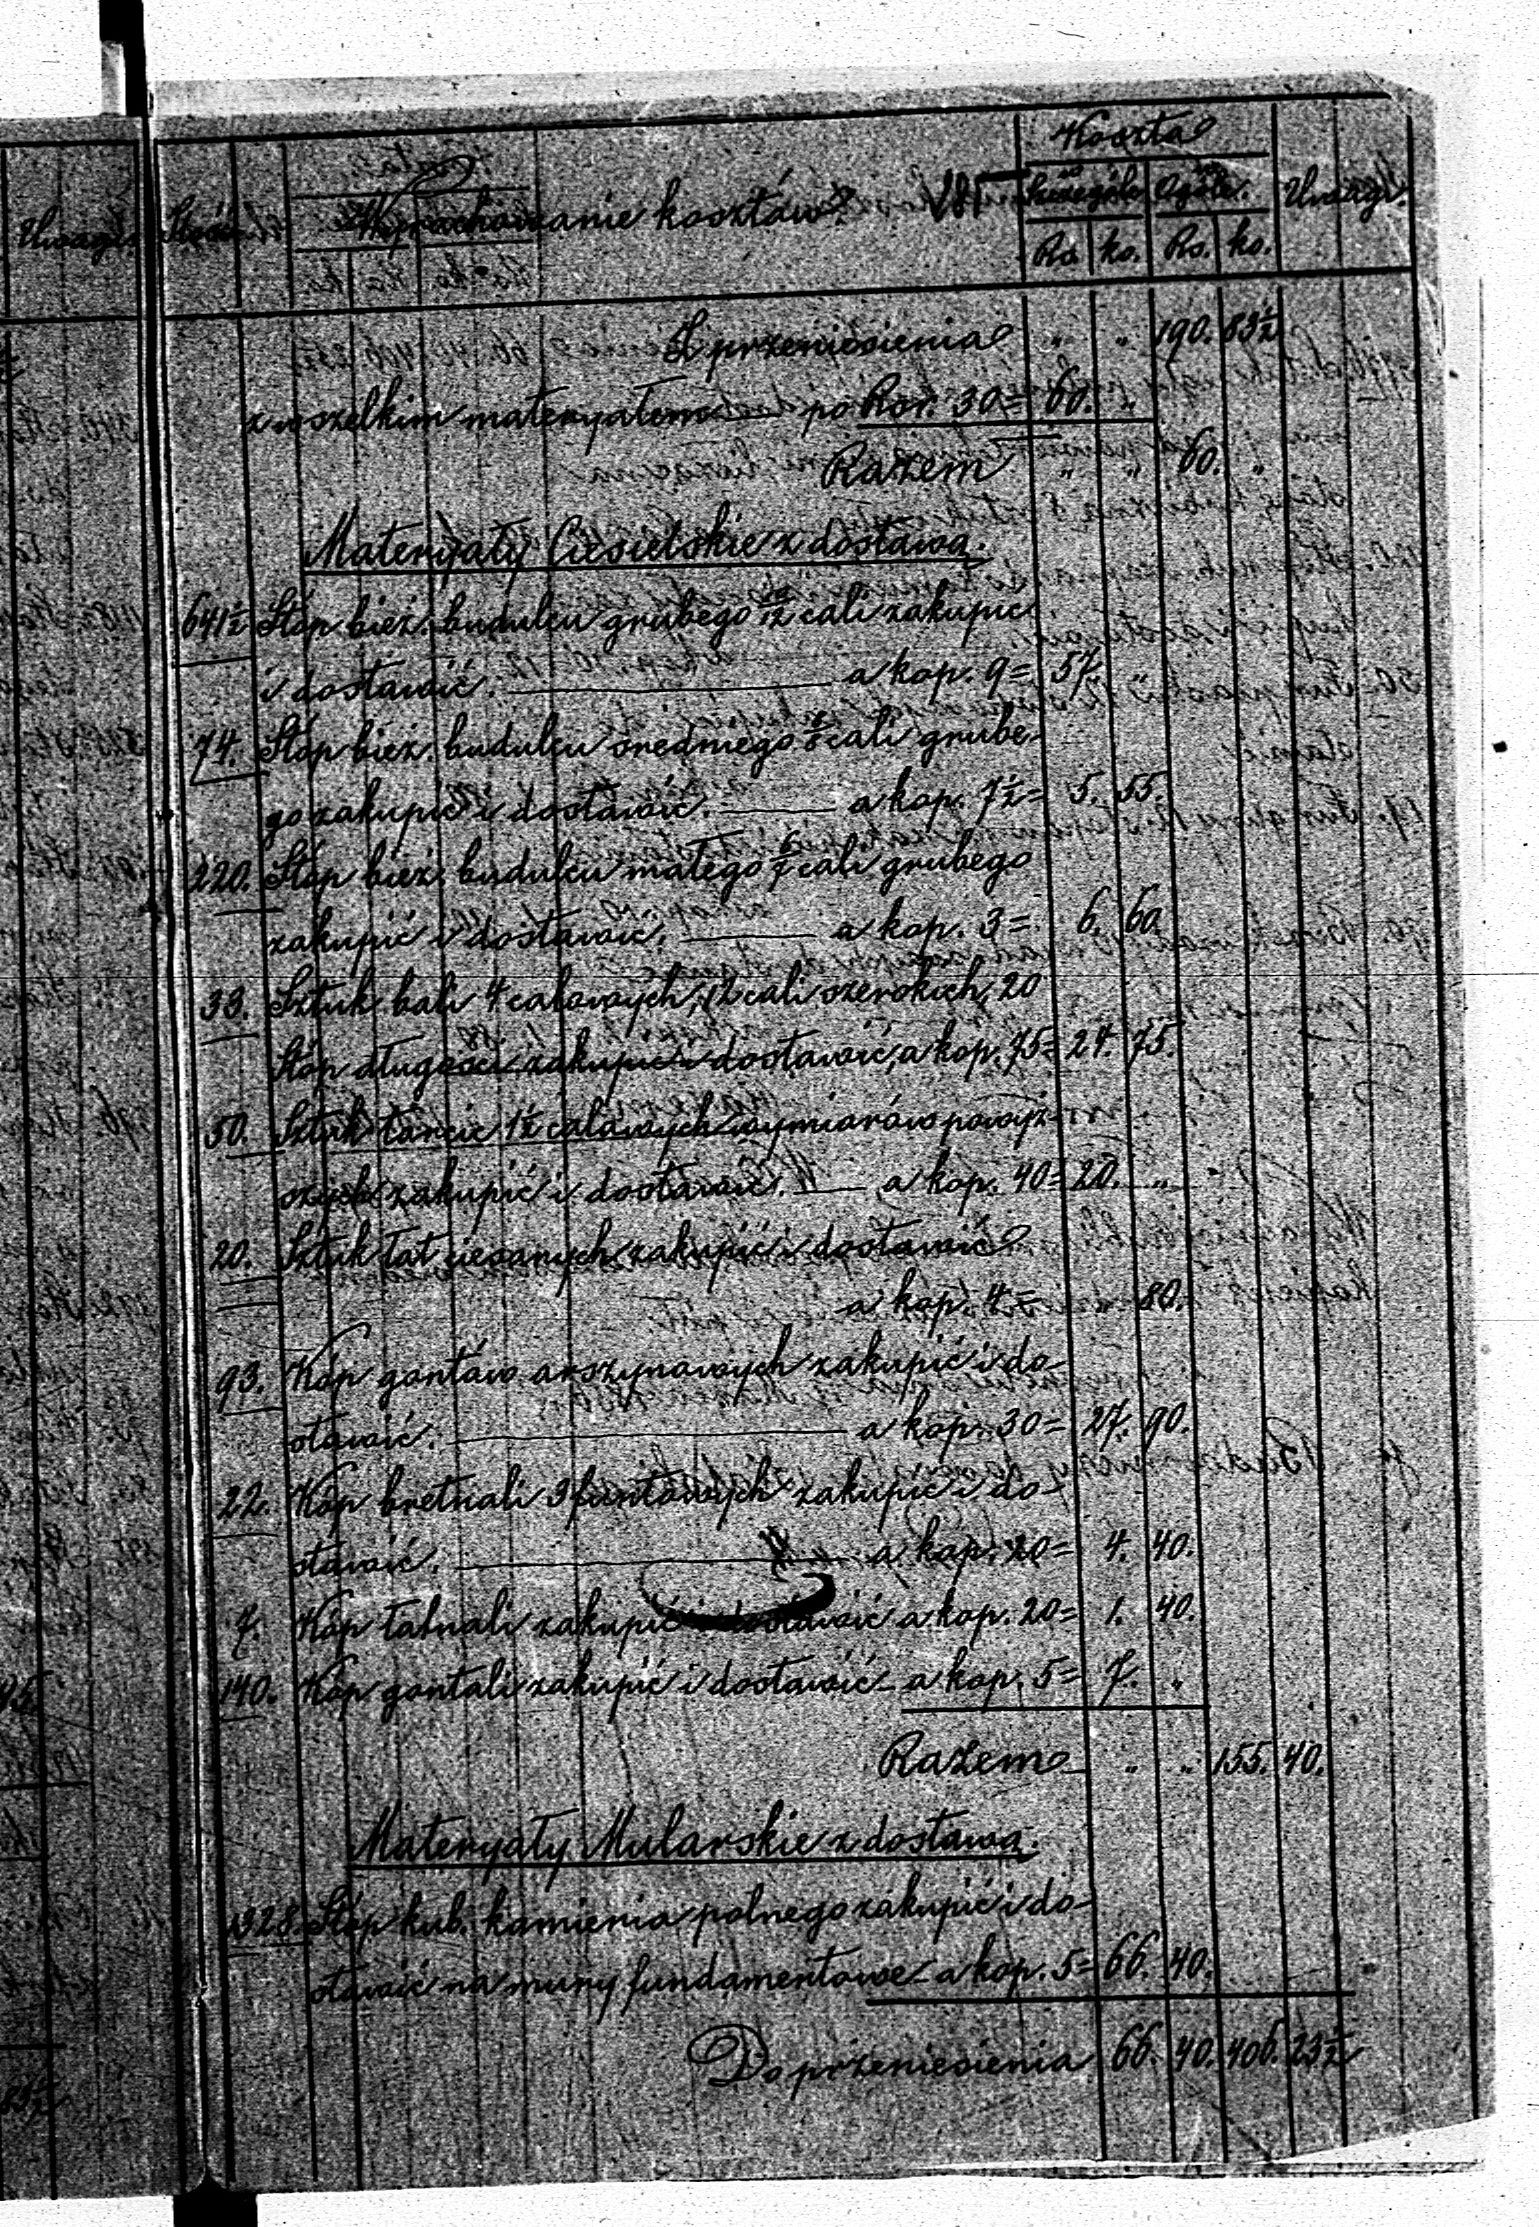 Koszta
Wyrachowanie kosztów. 187 Szczegół. Ogóln. Uwagi.
Rs. ko. Rs. ko.
Z przeniesienia " " 190. 83½
z wszelkim materyałem po Rsr. 30 = 60. "
Razem " " 60. "
Materyały Ciesielskie z dostawą.
641½ Stóp bież. budulcu grubego cali zakupić
i dostawić. a kop. 9 = 57. "
74. Stóp bież. budulcu średniego cali grube-
go zakupić i dostawić. a kop. 7½ = 5. 55.
220. Stóp bież. budulcu małego 6/7 cali grubego
zakupić i dostawić. a kop. 3 = 6. 60.
33. Sztuk bali 4 calowych, 12 cali szerokich, 20
Stóp długości zakupić i dostawić, a kop. 75 = 24. 75.
50. Sztuk tarcic 1½ calowych wymiarów powyż-
szych zakupić i dostawić. a kop. 40 = 20. "
20. Sztuk łat ciesanych zakupić i dostawić
a kop. 4 = 80.
93. Kóp gontów arszynowych zakupić i do-
stawić. a kop. 30 = 27. 90.
22. Kóp bretnali 3 funtowych zakupić i do-
stawić. a kop. 20 = 4. 40.
7. Kóp łatnali zakupić i dostawić a kop. 20 = 1. 40.
140. Kóp gontali zakupić i dostawić a kop. 5 = 7. "
Razem " " 155. 40.
Materyały Mularskie z dostawą.
1328. Stóp kub. kamienia polnego zakupić i do-
stawić na mury fundamentowe a kop. 5 = 66. 40.
Do przeniesienia 66. 40. 406. 23½